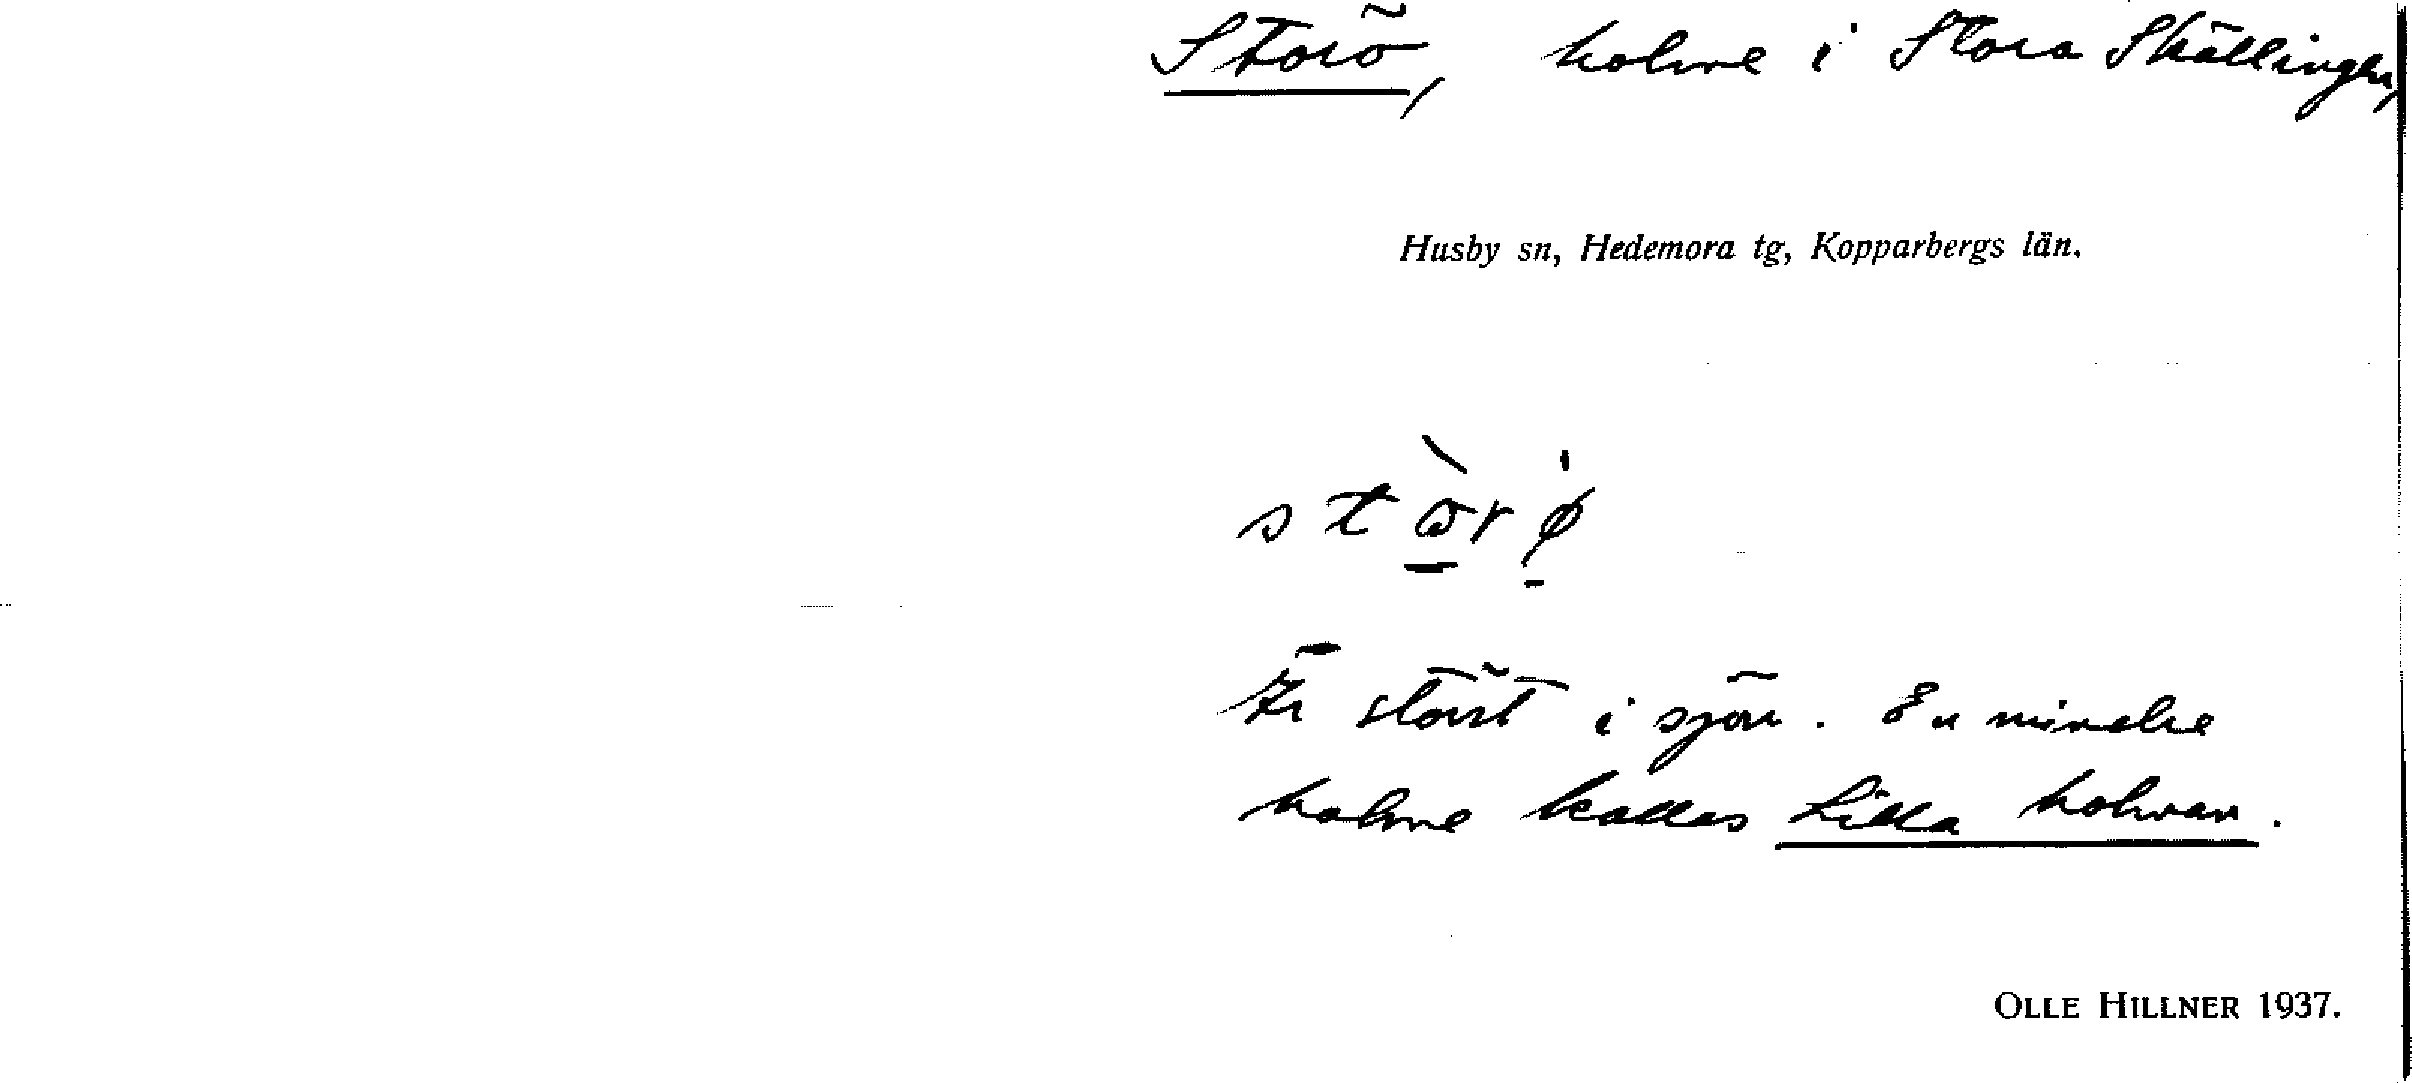 Storö, holme i Stora Skällingen,
Husby sn, Hedemora tg, Kopparbergs län.
Är störst i sjön. En mindre
holme kallas Lilla holmen.
OLLE HILLNER 1937.